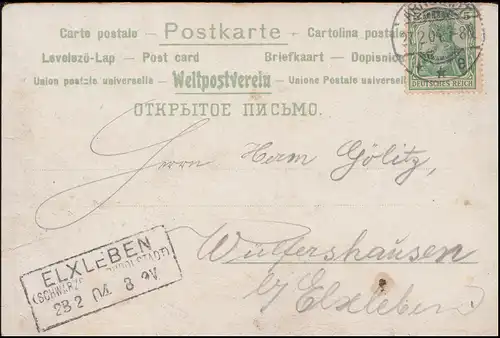 Carte postale - Postkarte - Cartolina postale
Levelező-Lap - Post card Briefkaart - Dopisnice
Union postale universelle - Weltpostverein - Unione Postale universell
ОТКРЫТОЕ ПИСЬМО.
5
2 04 7-8
DEUTSCHES REICH
Herrn Herm Gölitz,
Wülfershausen
b/ Elxleben
ELXLEBEN
23 2 04 8